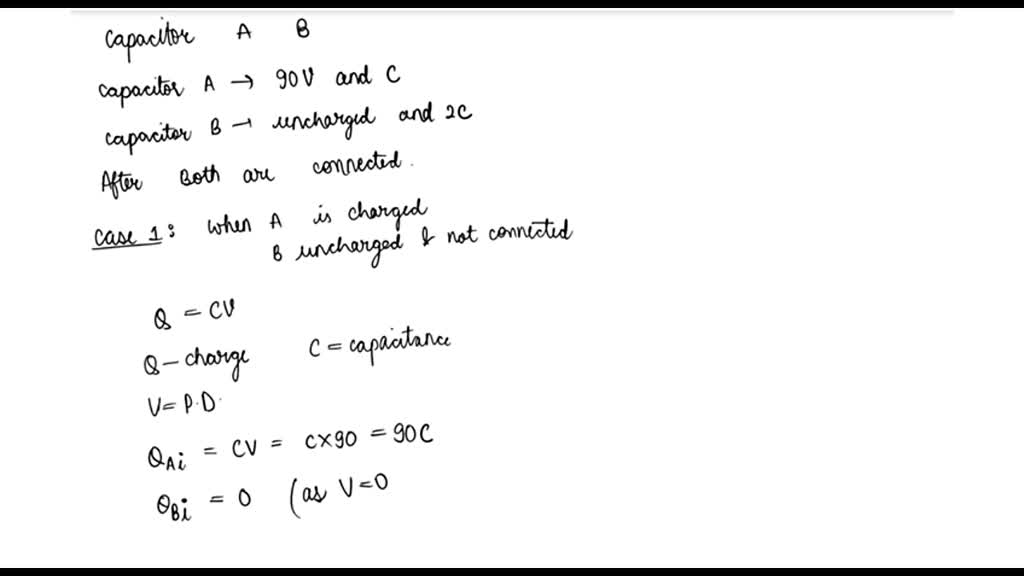 Capacitor A B
Capacitor A → 90V and C
Capacitor B → uncharged and 2C
After Both are connected.
Case 1: When A is charged
B uncharged & not connected
Q = CV
Q - charge C = capacitance
V = P.D.
QAi = CV = C×90 = 90C
QBi = 0 (as V=0